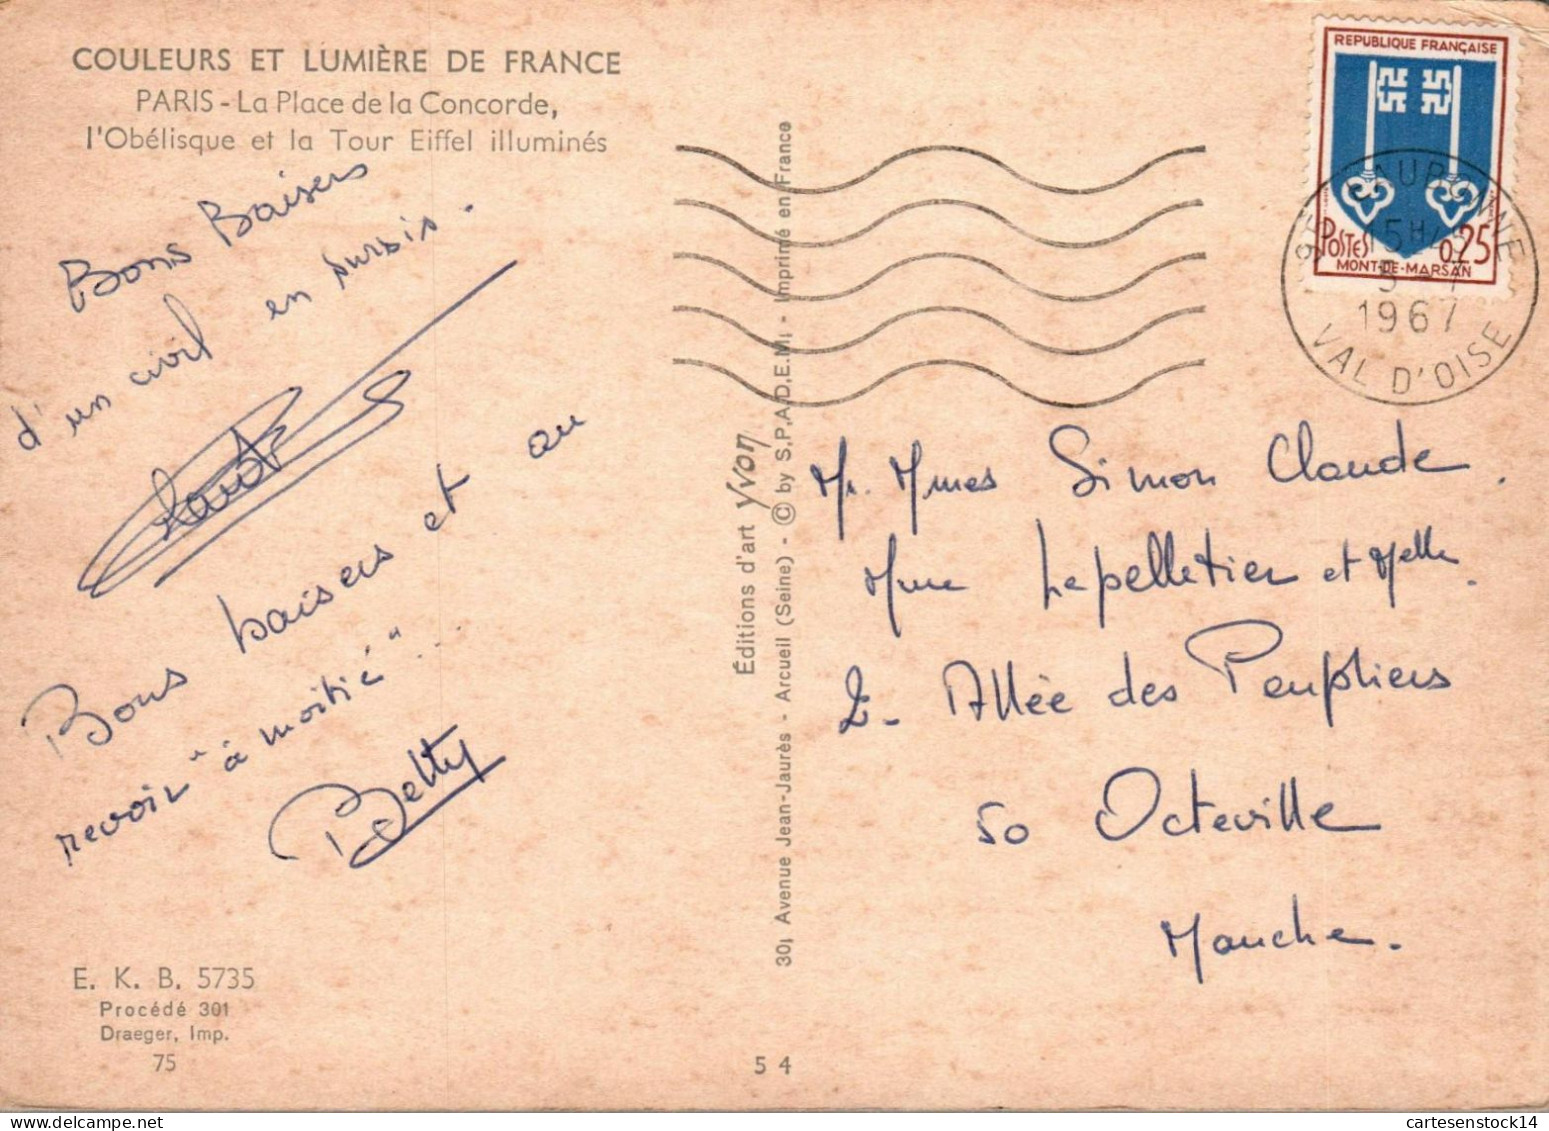 COULEURS ET LUMIÈRE DE FRANCE
PARIS - La Place de la Concorde,
l'Obélisque et la Tour Eiffel illuminés
Bons Baisers
d'un civil en sursis.
Bons baisers et au
revoir "à moitié"...
Betty
E. K. B. 5735
Procédé 301
Draeger, Imp.
75
Éditions d'art Yvon
30, Avenue Jean-Jaurès - Arcueil (Seine) - © by S.P.A.D.E.M. - Imprimé en France
54
REPUBLIQUE FRANÇAISE
POSTES 0,25
MONT-DE-MARSAN
15H45
1967
VAL D'OISE
Mr. Mmes Simon Claude.
Mme Lepelletier et Melle.
2 - Allée des Peupliers
50 Octeville
Manche.
cartesenstock14